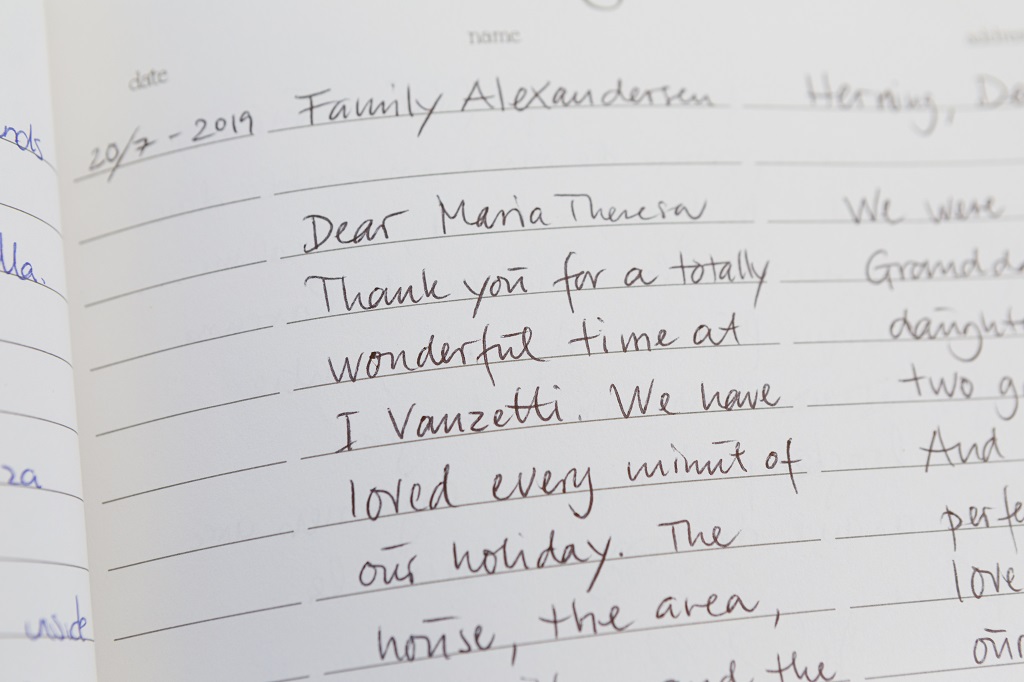 name
date
20/7 - 2019 Family Alexandersen Herning, De
Dear Maria Theresa We were
Thank you for a totally Grandd
wonderful time at daught
I Vanzetti. We have two g
loved every minut of And
our holiday. The perfe
house, the area, love
the our
nds
lla.
za
inside